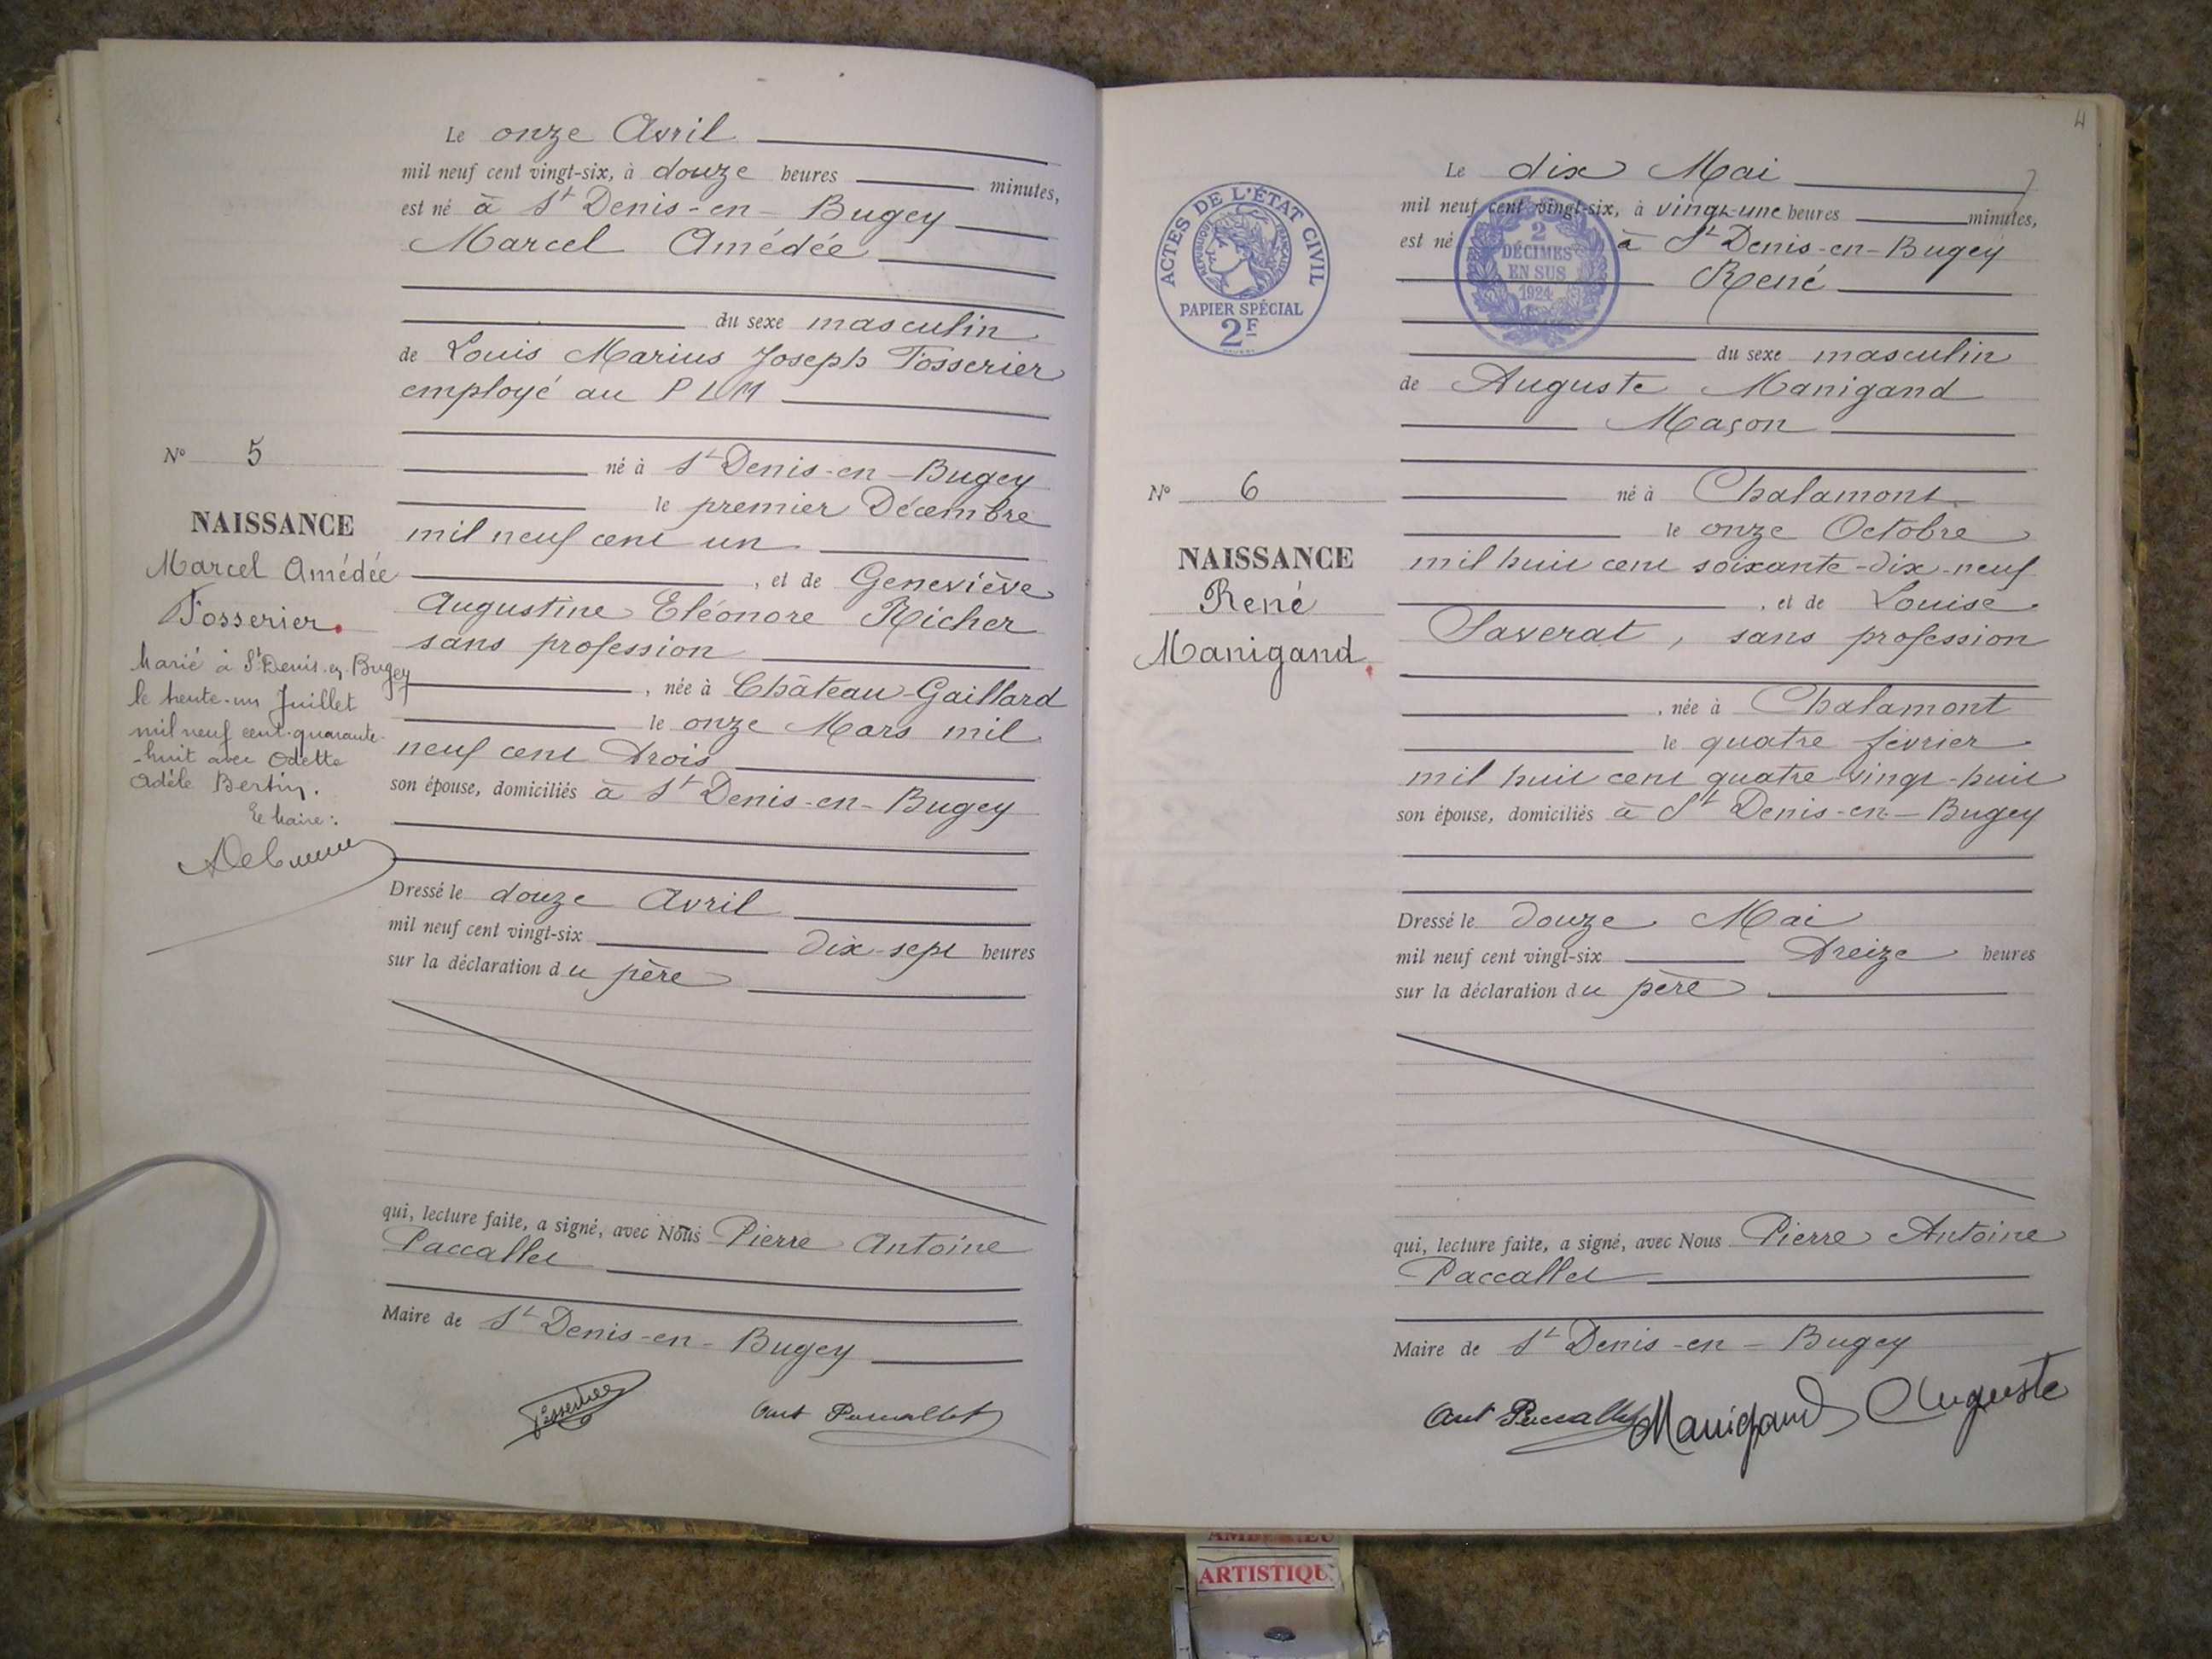 Le onze Avril
mil neuf cent vingt-six, à douze heures minutes,
est né à St Denis-en-Bugey
Marcel Amédée
du sexe masculin
de Louis Marius Joseph Fosserier
employé au P L M
né à St Denis-en-Bugey
le premier Décembre
mil neuf cent un
, et de Geneviève
Augustine Eléonore Richer
sans profession
, née à Château-Gaillard
le onze Mars mil
neuf cent trois
son épouse, domiciliés à St Denis-en-Bugey
Dressé le douze Avril
mil neuf cent vingt-six dix-sept heures
sur la déclaration du père
qui, lecture faite, a signé, avec Nous Pierre Antoine
Paccallet
Maire de St Denis-en-Bugey
Ant Paccallet
No 5
NAISSANCE
Marcel Amédée
Fosserier
Marié à St Denis-en-Bugey
le trente-un Juillet
mil neuf cent-quarante-
-huit avec Odette
Adèle Bertin.
Le Maire:
4
ACTES DE L'ÉTAT CIVIL
RÉPUBLIQUE FRANÇAISE
PAPIER SPÉCIAL
2F
2
DÉCIMES
EN SUS
1924
Le dix Mai
mil neuf cent vingt-six, à vingt-une heures minutes,
est né à St Denis-en-Bugey
René
du sexe masculin
de Auguste Manigand
Maçon
né à Chalamont
le onze Octobre
mil huit cent soixante-dix-neuf
, et de Louise
Saverat, sans profession
, née à Chalamont
le quatre février
mil huit cent quatre vingt-huit
son épouse, domiciliés à St Denis-en-Bugey
Dressé le douze Mai
mil neuf cent vingt-six treize heures
sur la déclaration du père
qui, lecture faite, a signé, avec Nous Pierre Antoine
Paccallet
Maire de St Denis-en-Bugey
Ant Paccallet Manigand Auguste
No 6
NAISSANCE
René
Manigand
ARTISTIQU